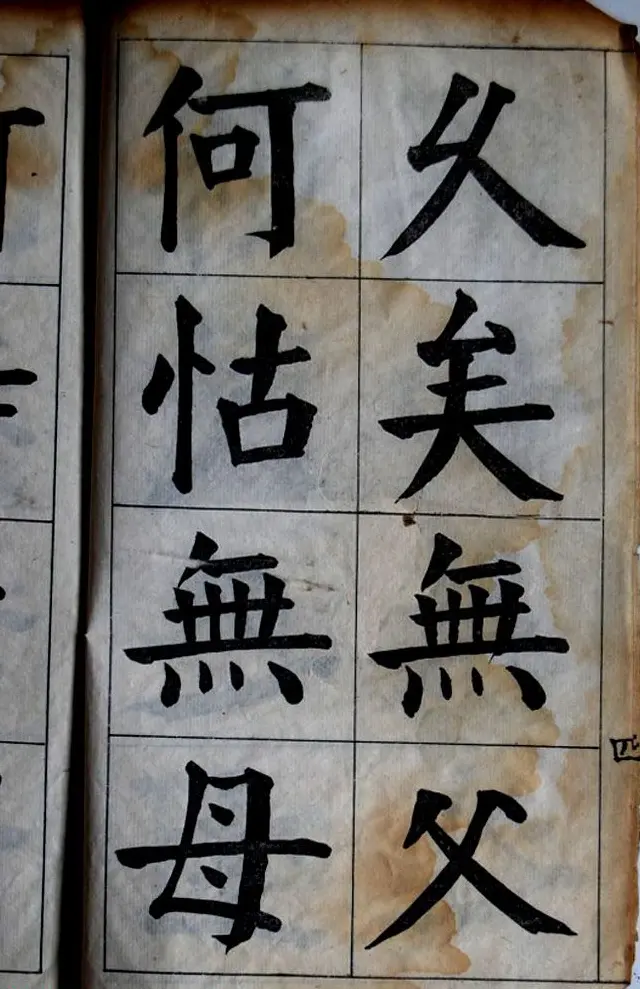 久矣無父
何怙無母